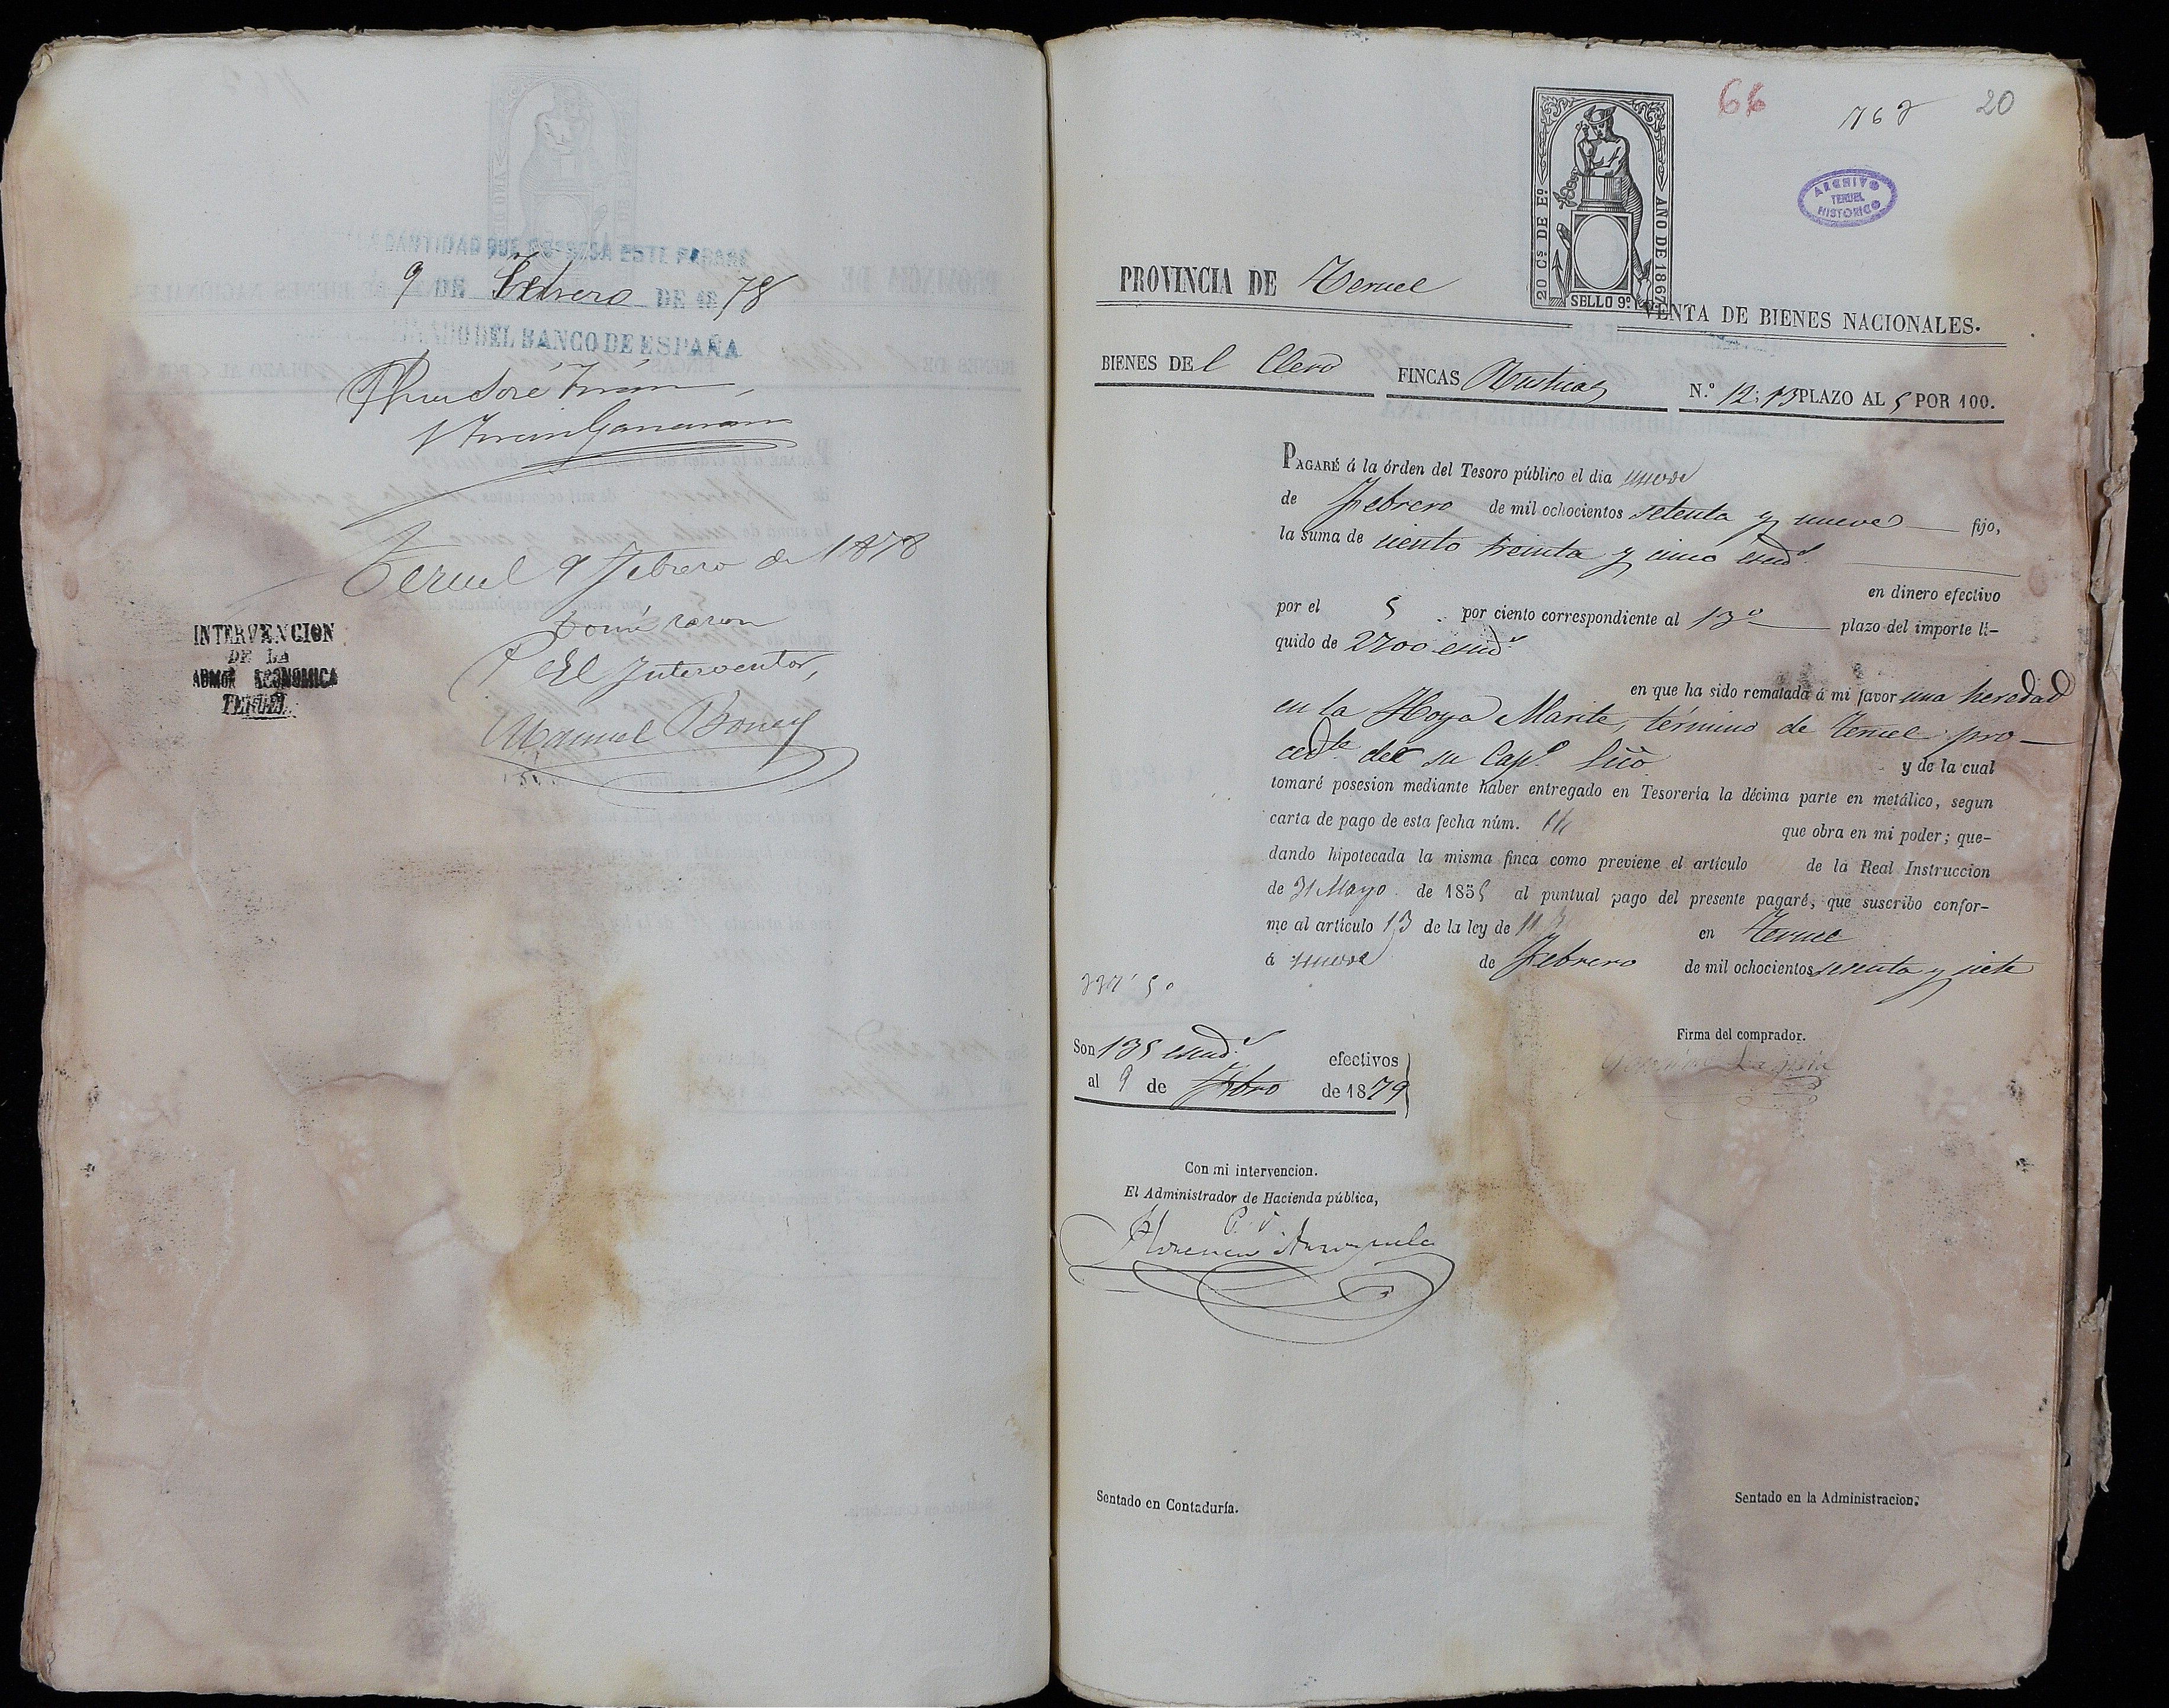 CANTIDAD QUE EXPRESA ESTE PAGARÉ
9 DE Febrero DE 1878
DEL BANCO DE ESPAÑA
José
Teruel 9 Febrero de 1878
Tomé razon
El Interventor,
Manuel
INTERVENCION
DE LA
ADMON ECONOMICA
TERUEL
66
762
20
20 Cs DE Eº
AÑO DE 1867
SELLO 9º
ARCHIVO
TERUEL
HISTORICO
PROVINCIA DE Teruel
VENTA DE BIENES NACIONALES.
BIENES DE l Clero
FINCAS Rusticas
N.º 12; 13 PLAZO AL 5 POR 100.
PAGARÉ á la órden del Tesoro público el dia nueve
de Febrero de mil ochocientos setenta y nueve fijo,
la suma de ciento treinta y cinco escud.s
en dinero efectivo
por el 5 por ciento correspondiente al 13º plazo del importe lí-
quido de 2700 escud.s
en que ha sido rematada á mi favor una heredad
en la Hoya Marite, término de Teruel pro-
ced.te de su Cap.º
y de la cual
tomaré posesion mediante haber entregado en Tesorería la décima parte en metálico, segun
carta de pago de esta fecha núm. que obra en mi poder; que-
dando hipotecada la misma finca como previene el artículo de la Real Instruccion
de 31 Mayo de 1855 al puntual pago del presente pagaré, que suscribo confor-
me al artículo 13 de la ley de 11 en Teruel
á nueve de Febrero de mil ochocientos sesenta y siete
337'50
Son 135 escud.s efectivos
al 9 de Fbro de 1879
Firma del comprador.
Con mi intervencion.
El Administrador de Hacienda pública,
Sentado en Contaduría.
Sentado en la Administracion.